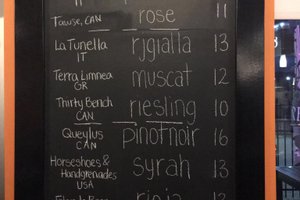 Tawse, CAN rose 11
La Tunella rjgialla 13
IT
Terra Limnea muscat 12
GR
Thirty Bench riesling 10
CAN
Queylus pinotnoir 16
CAN
Horseshoes & syrah 13
Handgrenades
USA
rioja